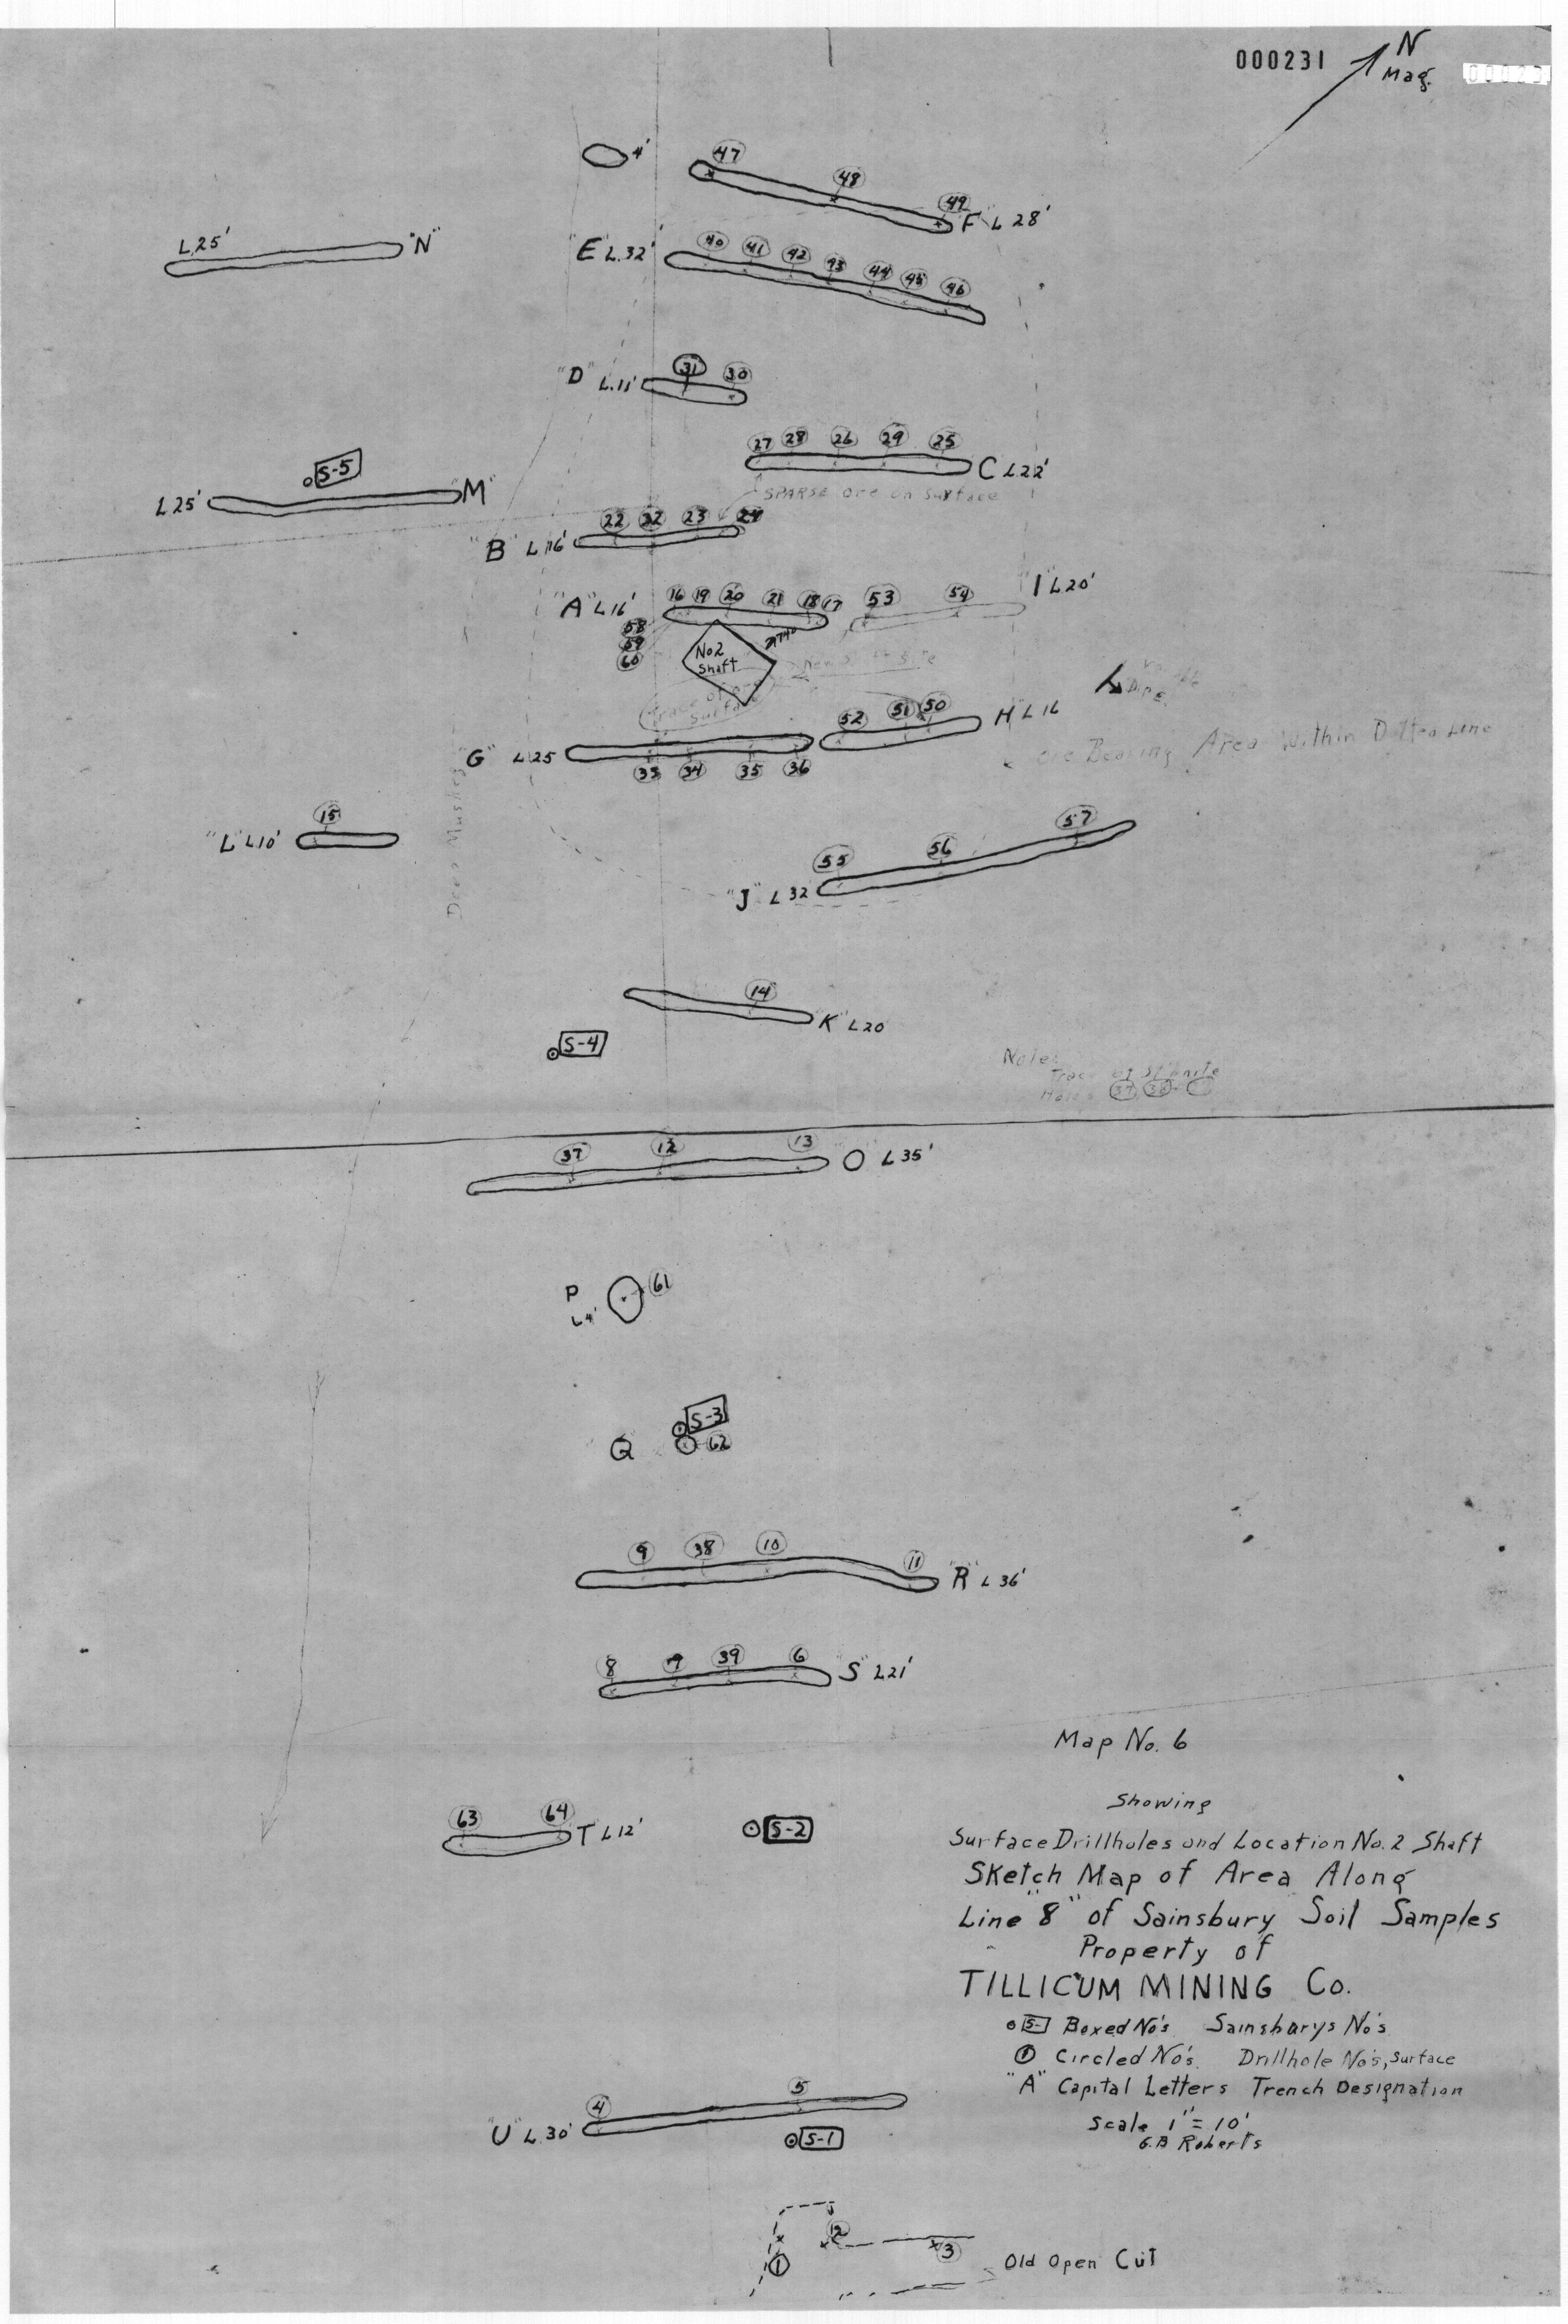 000231
N
Mag.
4'
47
48
49
"F" L 28'
L.25' "N"
"E" L.32'
40 41 42 43 44 45 46
"D" L.11'
31 30
27 28 26 29 25
C L22'
SPARSE ore on surface
S-5
L25' "M"
22 32 23 24
"B" L16'
"A" L16'
16 19 20 21 18 17
53 54
"I" L20'
58
59
60
No2
Shaft
New Shaft Site
Trace of ore
Surface
Dip E.
52 51 50
"H" L16
"G" L25
33 34 35 36
Ore Bearing Area Within Dotted Line
15
"L" L10'
Deep Muskeg
55 56 57
"J" L 32
14
"K" L20
S-4
Note:
Trace of
Holes 37 38
37 12 13
"O" L35'
P
L4'
61
S-3
Q
62
9 38 10 11
"R" L 36'
8 7 39 6
"S" L21'
Map No. 6
Showing
Surface Drillholes and Location No. 2 Shaft
Sketch Map of Area Along
Line "8" of Sainsbury Soil Samples
Property of
TILLICUM MINING Co.
S- Boxed No's Sainsburys No's
1 Circled No's. Drillhole No's, Surface
"A" Capital Letters Trench Designation
Scale 1" = 10'
G.B Roberts
63 64
T L12'
S-2
4 5
"U" L.30'
S-1
1 2 3
Old Open Cut